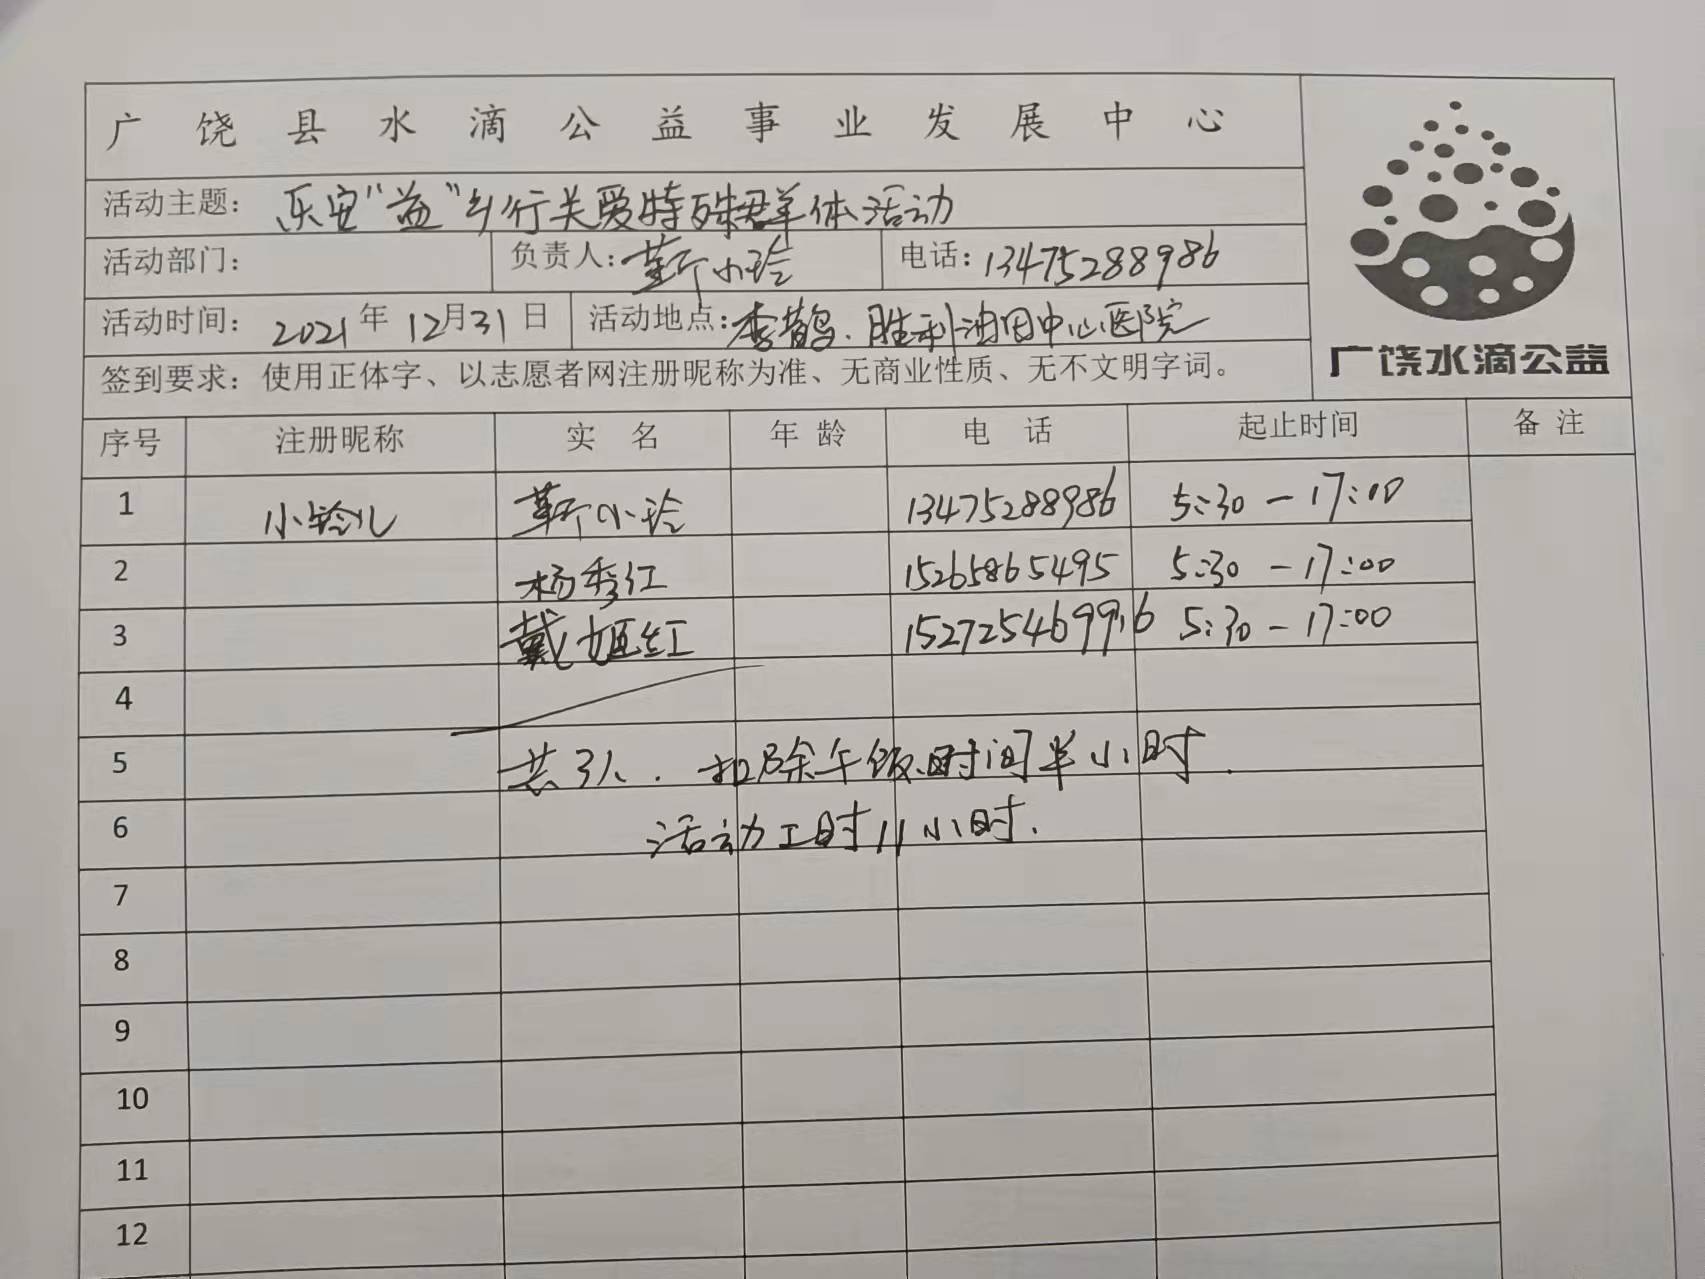 广饶县水滴公益事业发展中心
活动主题：乐安“益”乡行关爱特殊群体活动
活动部门： 负责人：靳小玲 电话：13475288986
活动时间：2021年12月31日 活动地点：李鹊.胜利油田中心医院
签到要求：使用正体字、以志愿者网注册昵称为准、无商业性质、无不文明字词。
广饶水滴公益
序号 注册昵称 实名 年龄 电话 起止时间 备注
1 小铃儿 靳小玲 13475288986 5:30-17:00
2 杨秀红 15265865495 5:30-17:00
3 戴姬红 5:30-17:00
4
5 共3人.扣除午饭时间半小时.
6 活动工时11小时.
7
8
9
10
11
12